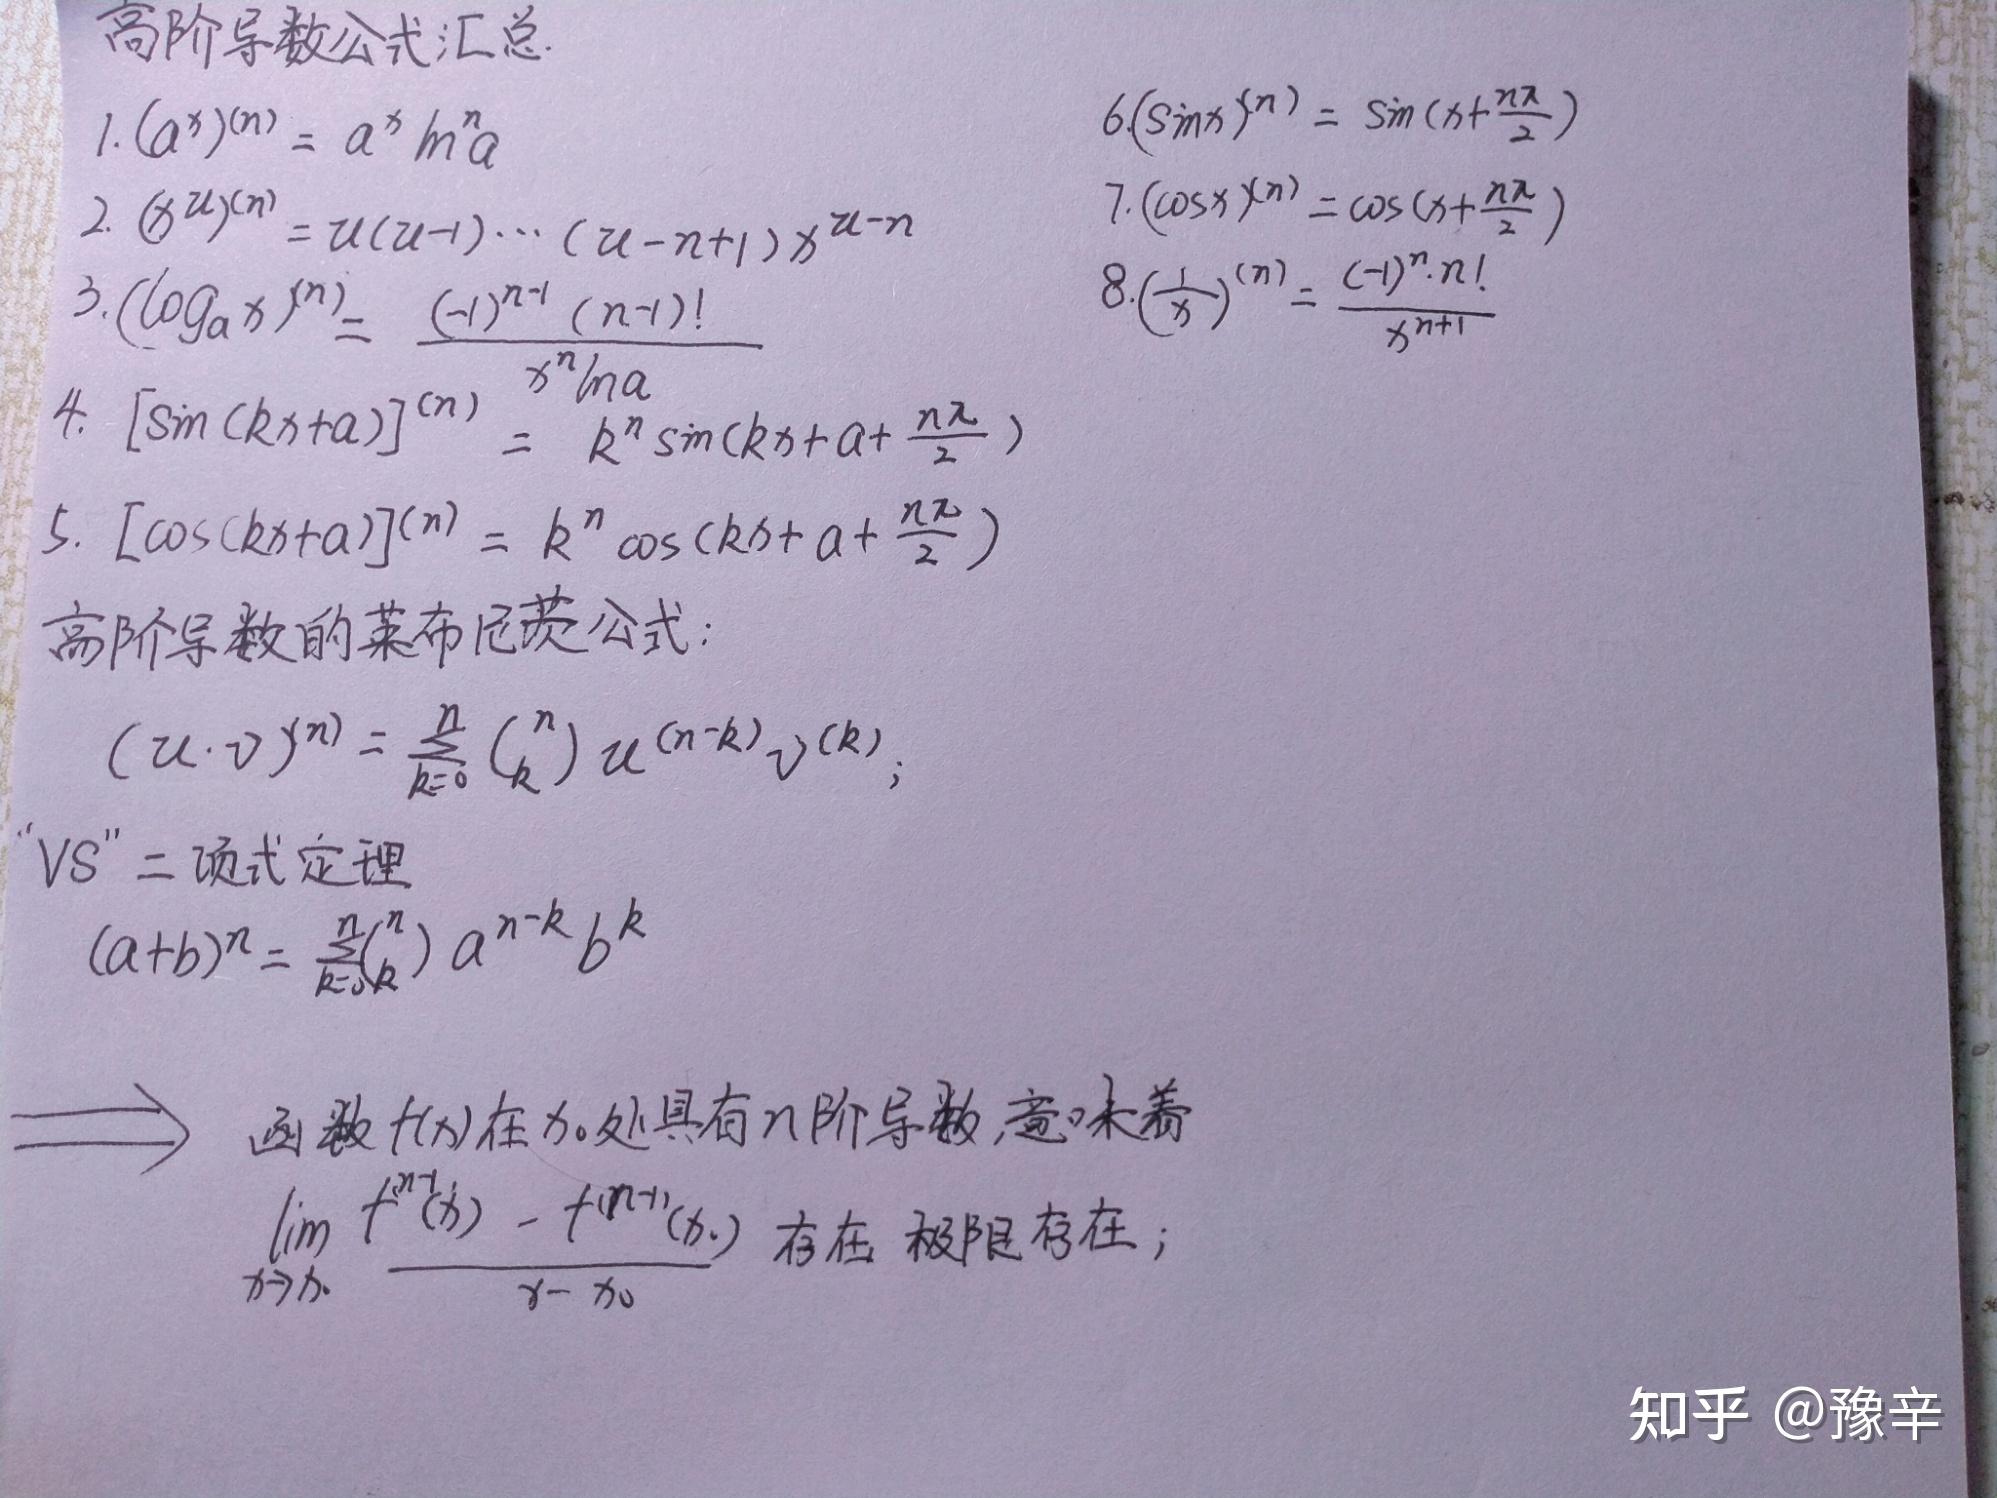 高阶导数公式汇总.
1. (aˣ)⁽ⁿ⁾ = aˣ lnⁿa
2. (x^u)^(n) = u(u-1)···(u-n+1) x^(u-n)
3. (logₐx)^(n) = (-1)^(n-1) (n-1)! / xⁿ ln a
4. [sin(kx+a)]^(n) = kⁿ sin(kx+a+nπ/2)
5. [cos(kx+a)]^(n) = kⁿ cos(kx+a+nπ/2)
6. (sinx)^(n) = sin(x+nπ/2)
7. (cosx)^(n) = cos(x+nπ/2)
8. (1/x)^(n) = (-1)ⁿ·n! / x^(n+1)
高阶导数的莱布尼茨公式:
(u·v)^(n) = Σ_{k=0}^{n} (n k) u^(n-k) v^(k);
"VS" 二项式定理
(a+b)ⁿ = Σ_{k=0}^{n} (n k) a^{n-k} b^k
⟹ 函数f(x)在x₀处具有n阶导数,意味着
lim_{x→x₀} f^(n-1)(x) - f^(n-1)(x₀) / x-x₀ 存在 极限存在;
知乎 @豫辛